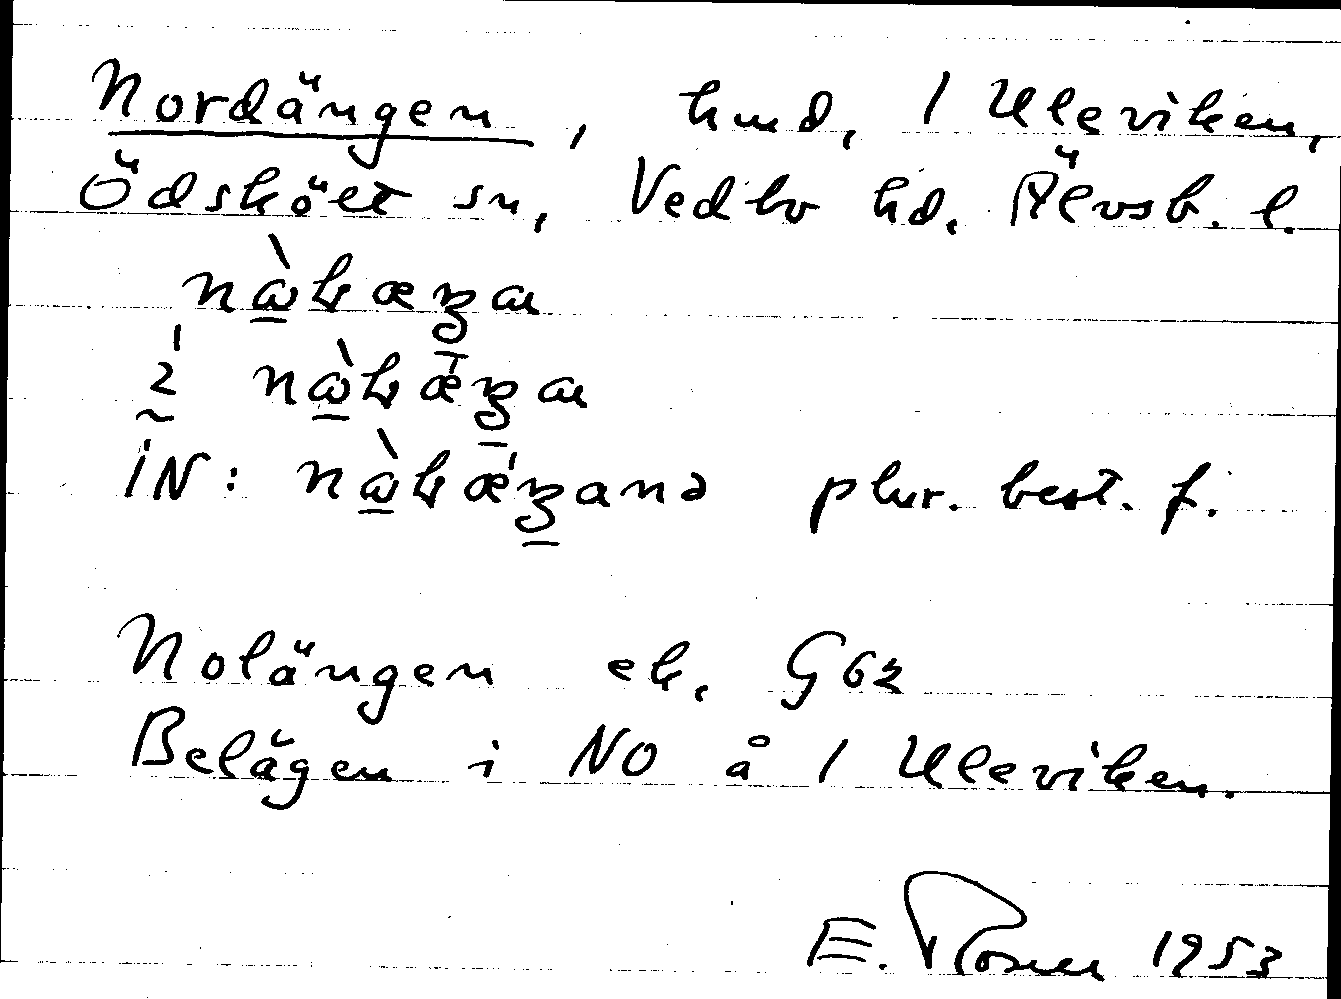 Nordängen, hmd, 1 Uleviken,
Ödskölt sn, Vedbo hd. Älvsb. l.
nὼꝇæŋa
i nὼꝇǽŋa
iN: nὼꝇǽŋanə plur. best. f.
Nolängen ek. G62
Belägen i NO å 1 Uleviken.
E. Rosell 1953